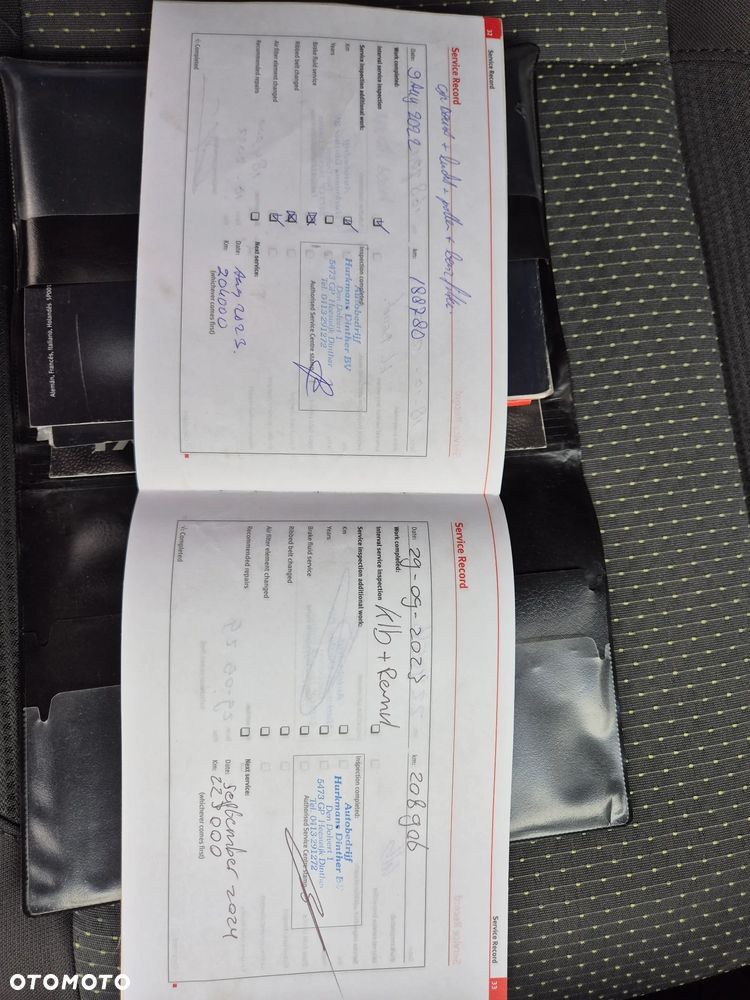 32 Service Record
Service Record
Date: 9 Aug 2022 km: 188780
Work completed:
Interval service inspection
Service inspection additional work:
Km
Years
Brake fluid service
Ribbed belt changed
Air filter element changed
Recommended repairs
√: Completed
Inspection completed:
Autobedrijf
Hurkmans Dinther BV
Den Dolvert 1
5473 GP Heeswijk Dinther
Tel. 0413-291272
Authorised Service Centre stamp
Next service:
Date: Aug 2023.
Km: 204000
(whichever comes first)
Alemán, Francés, Italiano, Holandés
Service Record 33
Service Record
Date: 29-09-2023 km: 208906
Work completed:
Interval service inspection
Service inspection additional work:
Km
Years
Brake fluid service
Ribbed belt changed
Air filter element changed
Recommended repairs
√: Completed
Inspection completed:
Autobedrijf
Hurkmans Dinther BV
Den Dolvert 1
5473 GP Heeswijk Dinther
Tel. 0413-291272
Authorised Service Centre stamp
Next service:
Date: September 2024
Km: 223000
(whichever comes first)
OTOMOTO